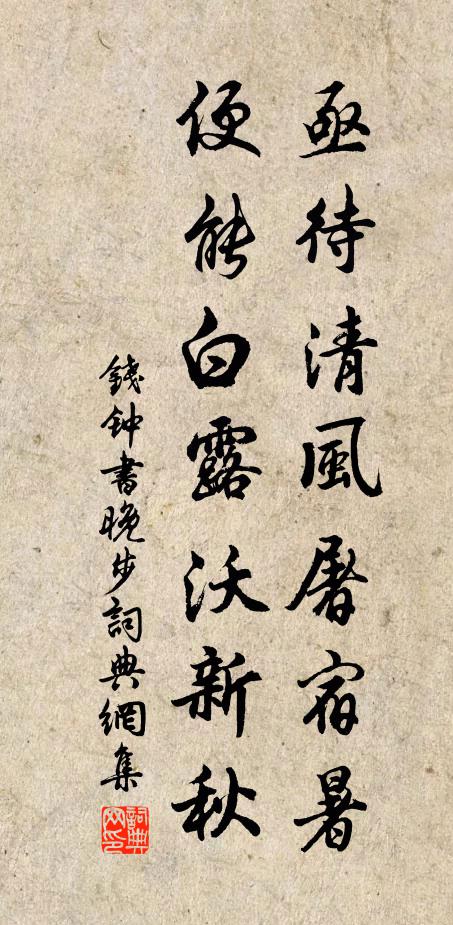 亟待清風屠宿暑
便能白露沃新秋
錢鈡書晚步詞典網集
詞典網印